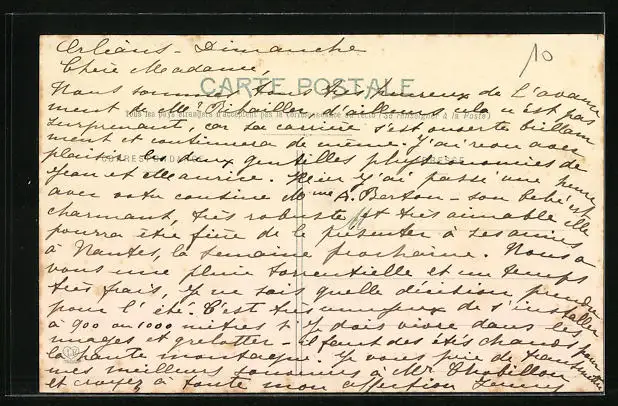 10
Orléans - Dimanche
Chère Madame,
CARTE POSTALE
Nous sommes tous très heureux de l'avance
ment de Mr Ribailler, d'ailleurs cela n'est pas
Tous les pays étrangers n'acceptent pas la correspondance au recto (Se renseigner à la Poste)
surprenant, car sa carrière s'est ouverte brillam
ment et continuera de même. J'ai revu avec
CORRESPONDANCE
ADRESSE
plaisir les deux gentilles physionomies de
Jean et Maurice. Hier j'ai passé une heure
avec votre cousine Mme A. Berton - son bébé est
charmant, très robuste et très aimable elle
pourra être fière de le présenter à ses amies
à Nantes, la semaine prochaine. Nous a
vons une pluie torrentielle et un temps
très frais, je ne sais quelle décision prendre
pour l'été. C'est très ennuyeux de s'installer
à 900 ou 1000 mètres si je dois vivre dans les
nuages et grelotter - il faut des étés chauds pour
la haute montagne. Je vous prie de transmettre
mes meilleurs souvenirs à Mr
et croyez à toute mon affection